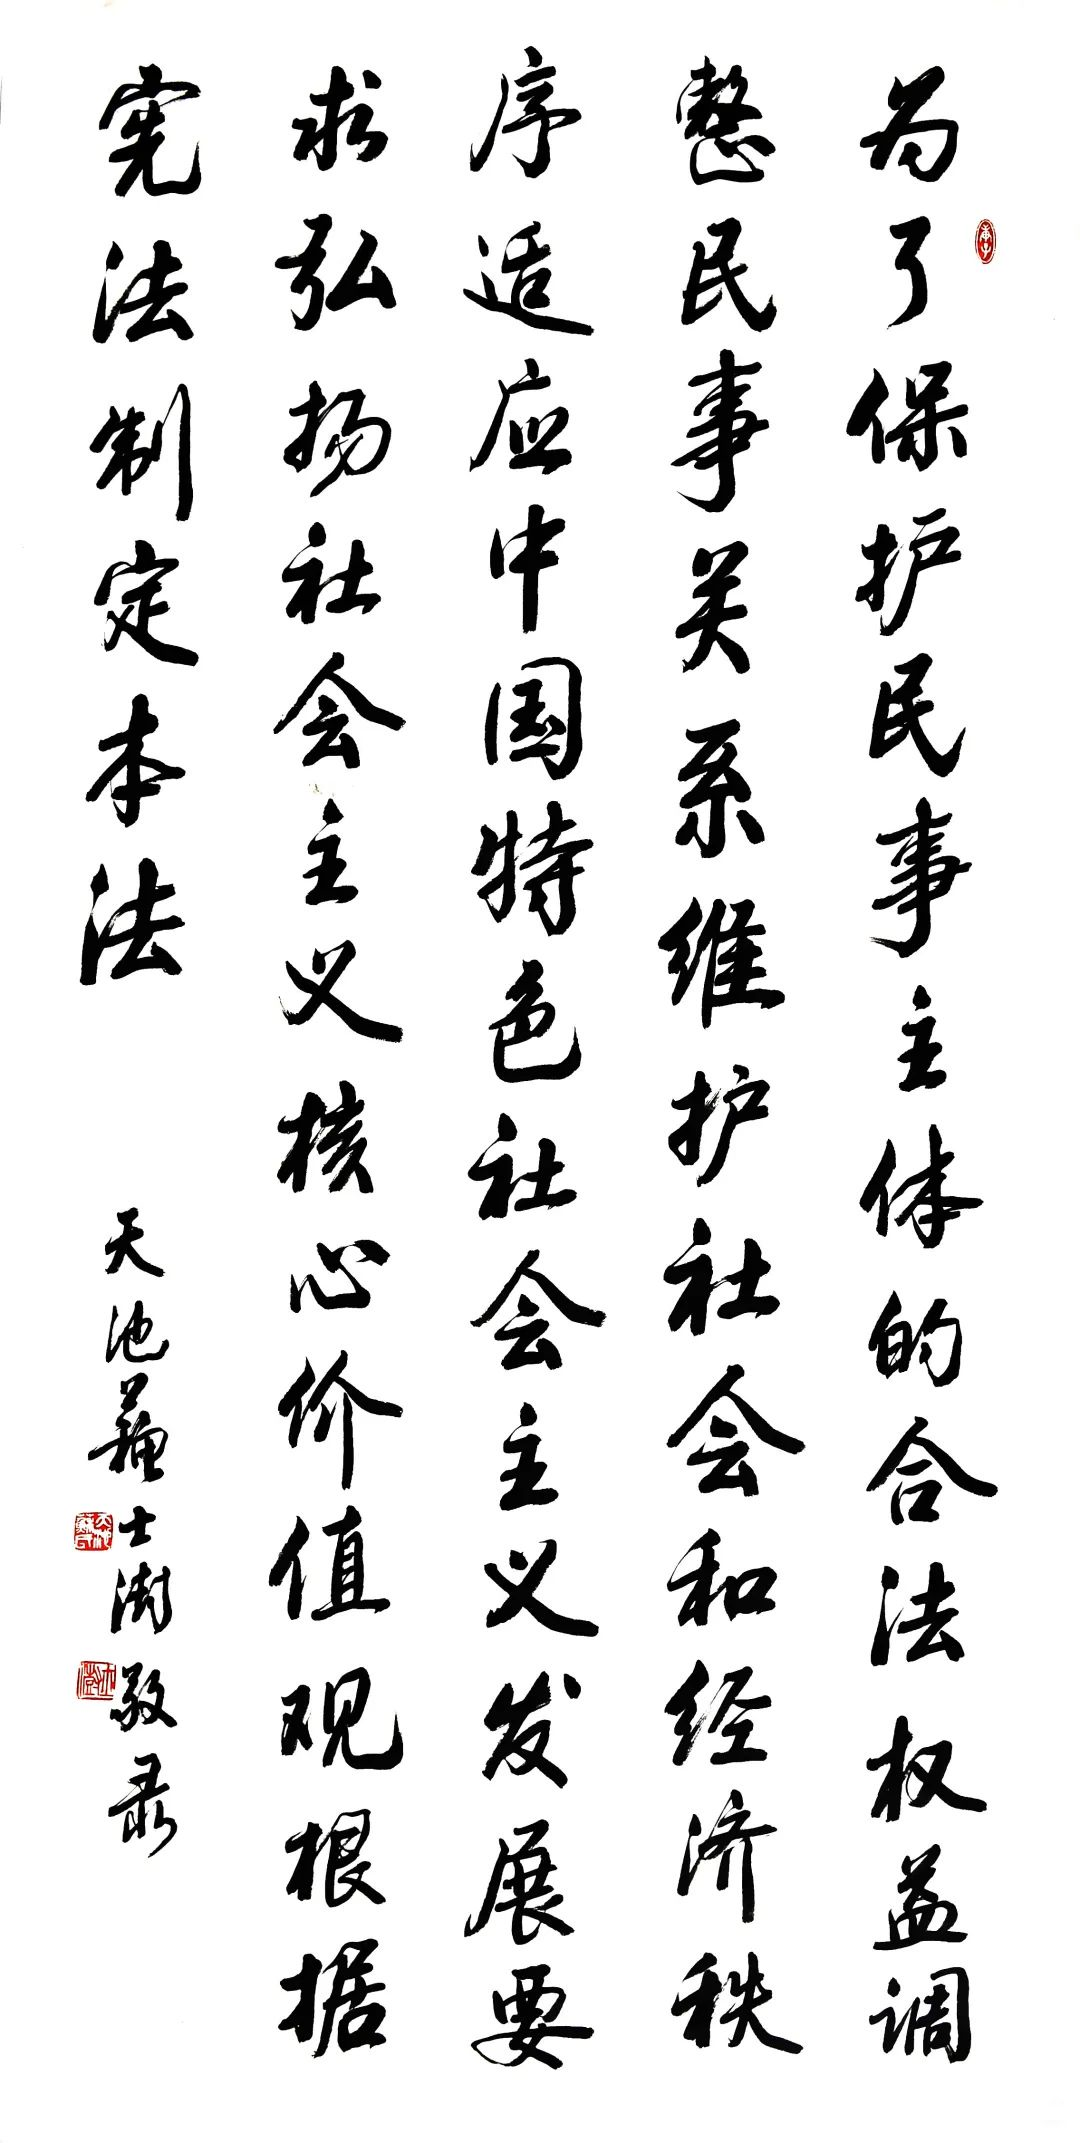 为了保护民事主体的合法权益调
整民事关系维护社会和经济秩
序适应中国特色社会主义发展要
求弘扬社会主义核心价值观根据
宪法制定本法
天池蘇士澍敬录
庚子